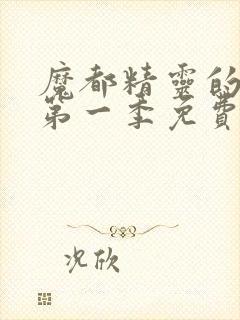 魔都精灵的
第一季免费
况欣